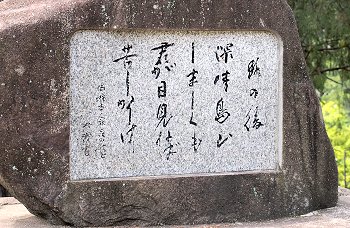 路の後
深津島山
しましくも
君が目見ねば
苦しかりけり